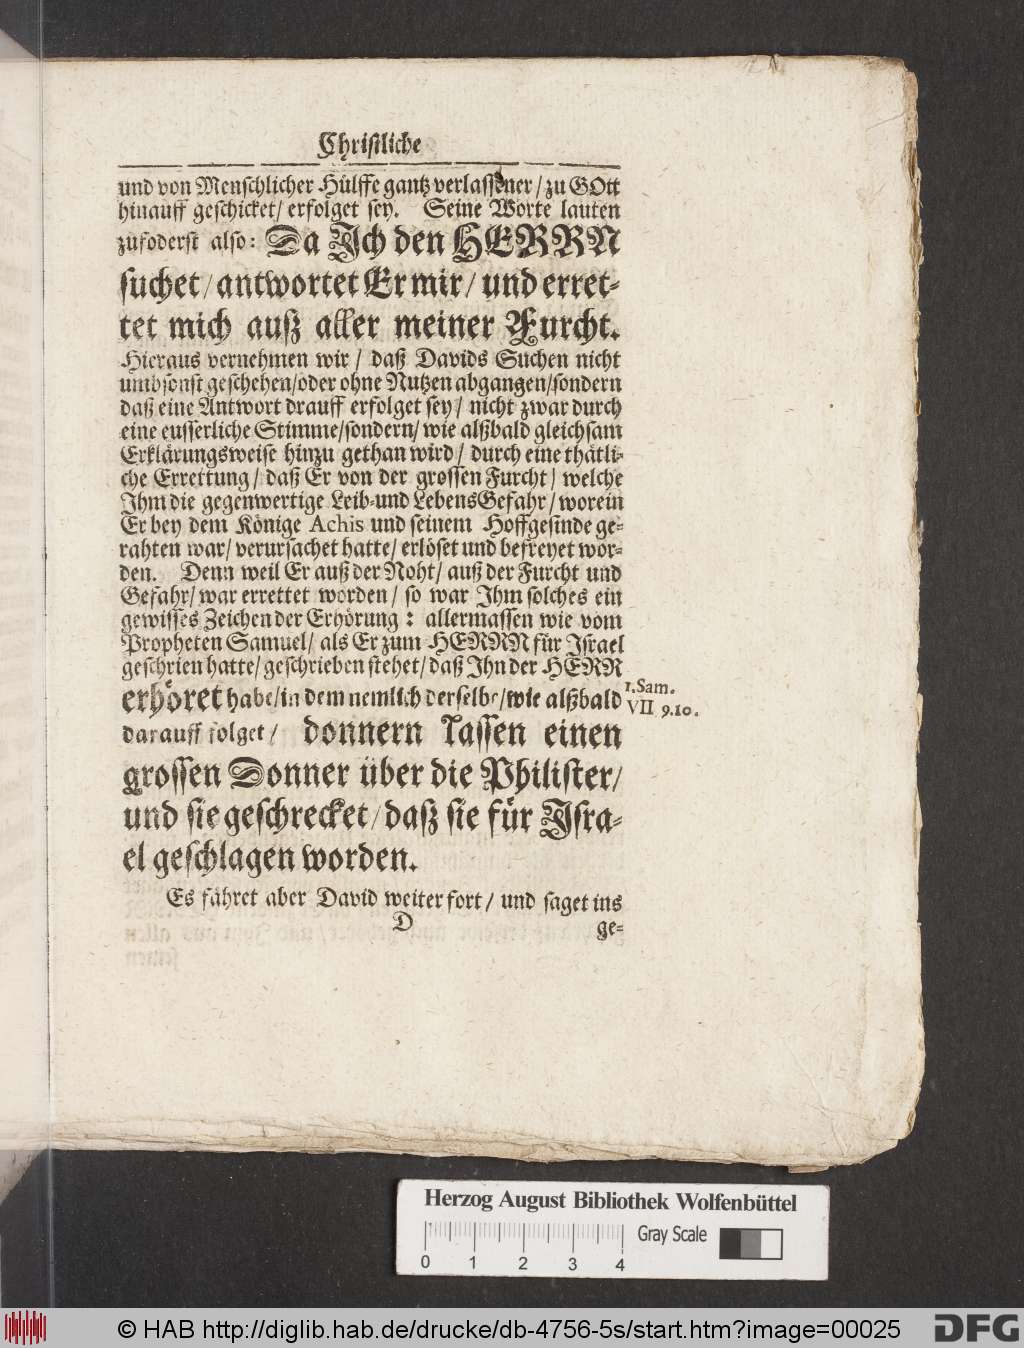 Christliche
und von Menschlicher Hülffe gantz verlassener / zu GOtt
hinauff geschicket / erfolget sey. Seine Worte lauten
zufoderst also: Da Jch den HERRN
suchet / antwortet Er mir / und erret-
tet mich auß aller meiner Furcht.
Hieraus vernehmen wir / daß Davids Suchen nicht
umbsonst geschehen / oder ohne Nutzen abgangen / sondern
daß eine Antwort drauff erfolget sey / nicht zwar durch
eine eusserliche Stimme / sondern / wie alßbald gleichsam
Erklärungsweise hinzu gethan wird / durch eine thätli-
che Errettung / daß Er von der grossen Furcht / welche
Jhm die gegenwertige Leib- und LebensGefahr / worein
Er bey dem Könige Achis und seinem Hoffgesinde ge-
rahten war / verursachet hatte / erlöset und befreyet wor-
den. Denn weil Er auß der Noht / auß der Furcht und
Gefahr / war errettet worden / so war Jhm solches ein
gewisses Zeichen der Erhörung: allermassen wie vom
Propheten Samuel / als Er zum HERRN für Jsrael
geschrien hatte / geschrieben stehet / daß Jhn der HERR
erhöret habe / in dem nemlich derselbe / wie alßbald
1. Sam.
VII 9.10.
darauff folget / donnern lassen einen
grossen Donner über die Philister /
und sie geschrecket / daß sie für Jsra-
el geschlagen worden.
Es fähret aber David weiter fort / und saget ins
D ge-
Herzog August Bibliothek Wolfenbüttel
Gray Scale
0 1 2 3 4
© HAB http://diglib.hab.de/drucke/db-4756-5s/start.htm?image=00025
DFG